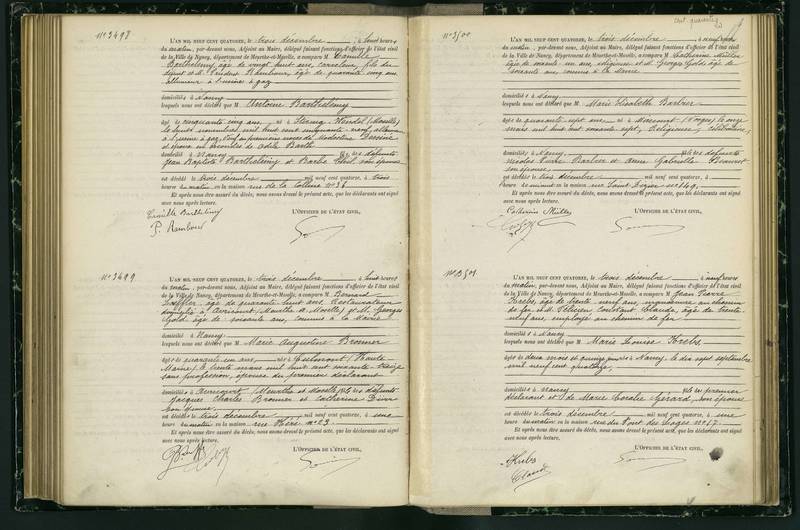 N° 3498
L'AN MIL NEUF CENT QUATORZE, le trois décembre, à huit heures
du matin, par-devant nous, Adjoint au Maire, délégué faisant fonctions d'officier de l'état civil
de la Ville de Nancy, département de Meurthe-et-Moselle, a comparu M Camille
Barthélemy, âgé de vingt huit ans, fils du
défunt et M. Rambour, âgé de quarante cinq ans
allumeur à l'usine à gaz
domiciliés à Nancy
lesquels nous ont déclaré que M Antoine Barthélemy
âgé de cinquante cinq ans, né à Wendel (Moselle)
le huit novembre mil huit cent cinquante neuf, allumeur
à l'usine à gaz, veuf en premières noces de Modestine
et époux en secondes de Odile Barth
domicilié à Nancy fils des défunts
Jean Baptiste Barthélemy et Barbe son épouse
est décédé le trois décembre mil neuf cent quatorze, à trois
heures du matin en la maison rue de la Colline N° 36
Et après nous être assuré du décès, nous avons dressé le présent acte, que les déclarants ont signé
avec nous après lecture.
L'OFFICIER DE L'ÉTAT CIVIL,
Camille Barthélemy
P. Rambour
N° 3499
L'AN MIL NEUF CENT QUATORZE, le trois décembre, à huit heures
du matin, par-devant nous, Adjoint au Maire, délégué faisant fonctions d'officier de l'état civil
de la Ville de Nancy, département de Meurthe-et-Moselle, a comparu M Bernard
âgé de quarante huit ans Restaurateur
domicilié à Avricourt (Meurthe et Moselle) et M. Georges
Gold âgé de soixante ans, commis à la Mairie
domicilié à Nancy
lesquels nous ont déclaré que M Marie Augustine Bronner
âgée de quarante un ans, née à Culmont (Haute
Marne) le trente mars mil huit cent soixante treize
sans profession, épouse du premier déclarant
domiciliée à Avricourt (Meurthe et Moselle) fille des défunts
Jacques Charles Bronner et Catherine
son épouse
est décédée le trois décembre mil neuf cent quatorze, à une
heure du matin en la maison rue N° 23
Et après nous être assuré du décès, nous avons dressé le présent acte, que les déclarants ont signé
avec nous après lecture.
L'OFFICIER DE L'ÉTAT CIVIL,
N° 3500
L'AN MIL NEUF CENT QUATORZE, le trois décembre, à neuf heures
du matin, par-devant nous, Adjoint au Maire, délégué faisant fonctions d'officier de l'état civil
de la Ville de Nancy, département de Meurthe-et-Moselle, a comparu M Catherine Müller
âgée de soixante un ans, religieuse et M. Georges Gold âgé de
soixante ans, commis à la Mairie
domiciliés à Nancy
lesquels nous ont déclaré que M Marie Elisabeth Barbier
âgée de quarante sept ans, née à (Vosges) le onze
mars mil huit cent soixante sept, Religieuse, célibataire,
domiciliée à Nancy, fille des défunts
Nicolas Pierre Barbier et Anne Gabrielle
son épouse
est décédée le trois décembre mil neuf cent quatorze, à
heure de minuit en la maison rue Saint Dizier N° 149
Et après nous être assuré du décès, nous avons dressé le présent acte, que les déclarants ont signé
avec nous après lecture.
Catherine Müller
L'OFFICIER DE L'ÉTAT CIVIL,
N° 3501
L'AN MIL NEUF CENT QUATORZE, le trois décembre, à neuf heures
du matin, par-devant nous, Adjoint au Maire, délégué faisant fonctions d'officier de l'état civil
de la Ville de Nancy, département de Meurthe-et-Moselle, a comparu M Jean Pierre
Krebs, âgé de trente neuf ans, au chemin
de fer et M. Constant Claude, âgé de trente
neuf ans, employé au chemin de fer
domiciliés à Nancy
lesquels nous ont déclaré que M Marie Louise Krebs
âgée de deux mois et quinze jours née à Nancy le dix sept septembre
mil neuf cent quatorze,
domiciliée à Nancy fille du premier
déclarant et de Marie Coralie Gérard, son épouse
est décédée le trois décembre mil neuf cent quatorze, à une
heure du matin en la maison rue du Pont des Loges N° 17
Et après nous être assuré du décès, nous avons dressé le présent acte, que les déclarants ont signé
avec nous après lecture.
L'OFFICIER DE L'ÉTAT CIVIL,
Krebs
Claude